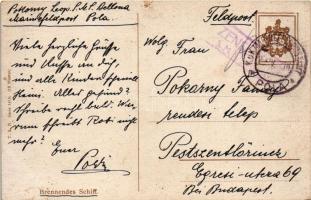 Pokorny Leop. S.M.S. Bellona
Marinefeldpost Pola.
Viele herzliche Grüsse
und Küsse an dich,
und alle Kinder speziell
Heini. Alles gesund?
Schreibe recht bald. Wa-
rum schreibt Rosi nicht
mehr?
Euer
Poldi
Brennendes Schiff.
Feldpost.
Wolg. Frau
Pokorny
rendesi telep
Pestszentlőrincz
Egressi-utcza 69
Bei Budapest.
POLA